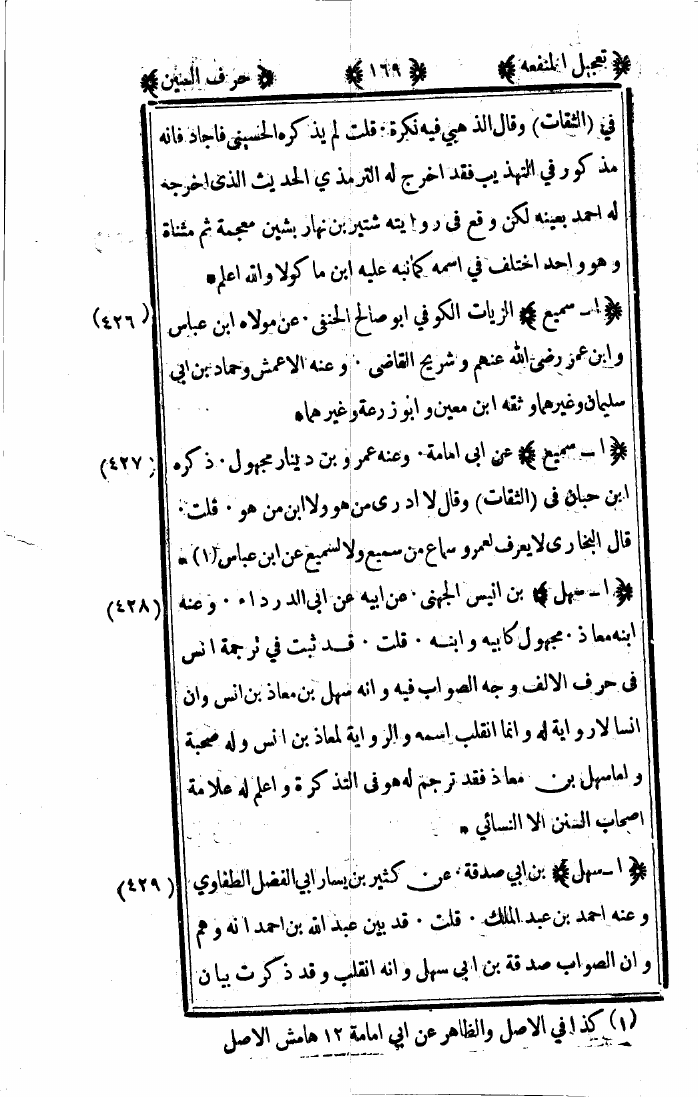 ﴿ تعجيل المنفعه ﴾ ﴿ ١٦٩ ﴾ ﴿ حرف السين ﴾
في (الثقات) وقال الذهبي فيه نكرة · قلت لم يذكره الحسيني فاجاد فانه
مذكور في التهذيب فقد اخرج له الترمذي الحديث الذى اخرجه
له احمد بعينه لكن وقع فى روايته شتير بن نهار بشين معجمة ثم مثناة
وهو واحد اختلف في اسمه كما نبه عليه ابن ماكولا والله اعلم *
﴿ ا – سميع ﴾ الزيات الكوفي ابو صالح الحنفى · عن مولاه ابن عباس (٤٢٦)
وابن عمر رضى الله عنهم و شريح القاضى · و عنه الاعمش وحماد بن ابى
سليمان وغيرهما و ثقه ابن معين و ابو زرعة وغيرهما *
﴿ ا – سميع ﴾ عن ابى امامة · وعنه عمرو بن دينار مجهول · ذكره (٤٢٧)
ابن حبان فى (الثقات) وقال لا ادرى من هو ولا ابن من هو · قلت ·
قال البخارى لا يعرف لعمرو سماع من سميع ولا لسميع عن ابن عباس (١) *
﴿ ا – سهل ﴾ بن انيس الجهنى · عن ابيه عن ابى الدرداء · و عنه (٤٢٨)
ابنه معاذ · مجهول كابيه و ابنه · قلت · قد ثبت في ترجمة انس
فى حرف الالف وجه الصواب فيه و انه سهل بن معاذ بن انس وان
انسا لا رواية له و انما انقلب اسمه و الرواية لمعاذ بن انس و له صحبة
و اما سهل بن معاذ فقد ترجم له هو فى التذكرة و اعلم له علامة
اصحاب السنن الا النسائي *
﴿ ا – سهل ﴾ بن ابي صدقة · عن كثير بن يسار ابي الفضل الطفاوي (٤٢٩)
و عنه احمد بن عبد الملك · قلت · قد بين عبد الله بن احمد انه وهم
و ان الصواب صدقة بن ابى سهل و انه انقلب و قد ذكرت بيان
(١) كذا في الاصل والظاهر عن ابي امامة ١٢ هامش الاصل